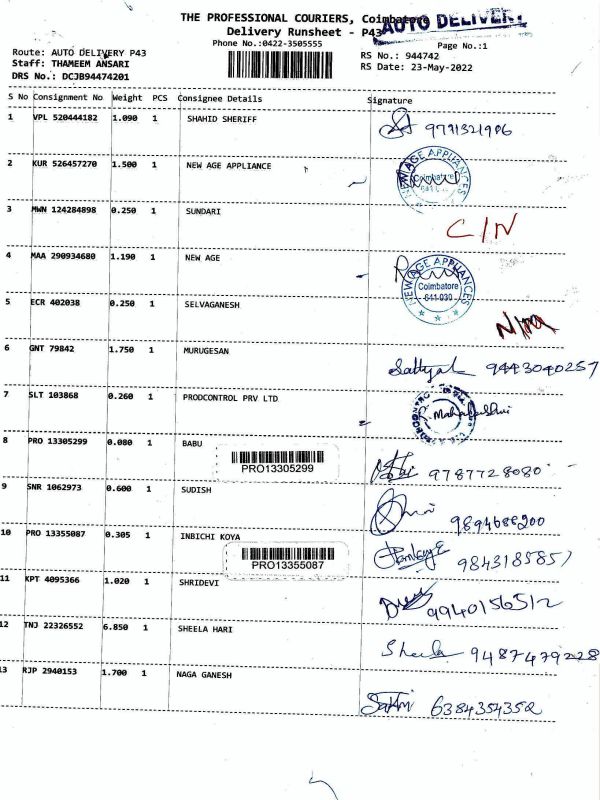 THE PROFESSIONAL COURIERS, Coimbatore
AUTO DELIVERY
Delivery Runsheet - P43
Phone No.:0422-3505555
Page No.:1
Route: AUTO DELIVERY P43
Staff: THAMEEM ANSARI
DRS No.: DCJB94474201
RS No.: 944742
RS Date: 23-May-2022
S No Consignment No Weight PCS Consignee Details Signature
1 VPL 520444182 1.090 1 SHAHID SHERIFF 9791321906
2 KUR 526457270 1.500 1 NEW AGE APPLIANCE
NEW AGE APPLIANCES
Coimbatore
3 MWN 124284898 0.250 1 SUNDARI C/N
4 MAA 290934680 1.190 1 NEW AGE
NEW AGE APPLIANCES
Coimbatore
641-030
5 ECR 402038 0.250 1 SELVAGANESH
6 GNT 79842 1.750 1 MURUGESAN 9443040257
7 SLT 103868 0.260 1 PRODCONTROL PRV LTD
8 PRO 13305299 0.080 1 BABU 9787728080
PRO13305299
9 SNR 1062973 0.600 1 SUDISH 9894688200
10 PRO 13355087 0.305 1 INBICHI KOYA 9843185857
PRO13355087
11 KPT 4095366 1.020 1 SHRIDEVI 9940156512
12 TNJ 22326552 6.850 1 SHEELA HARI Sheela 9487479228
13 RJP 2940153 1.700 1 NAGA GANESH 6384354352